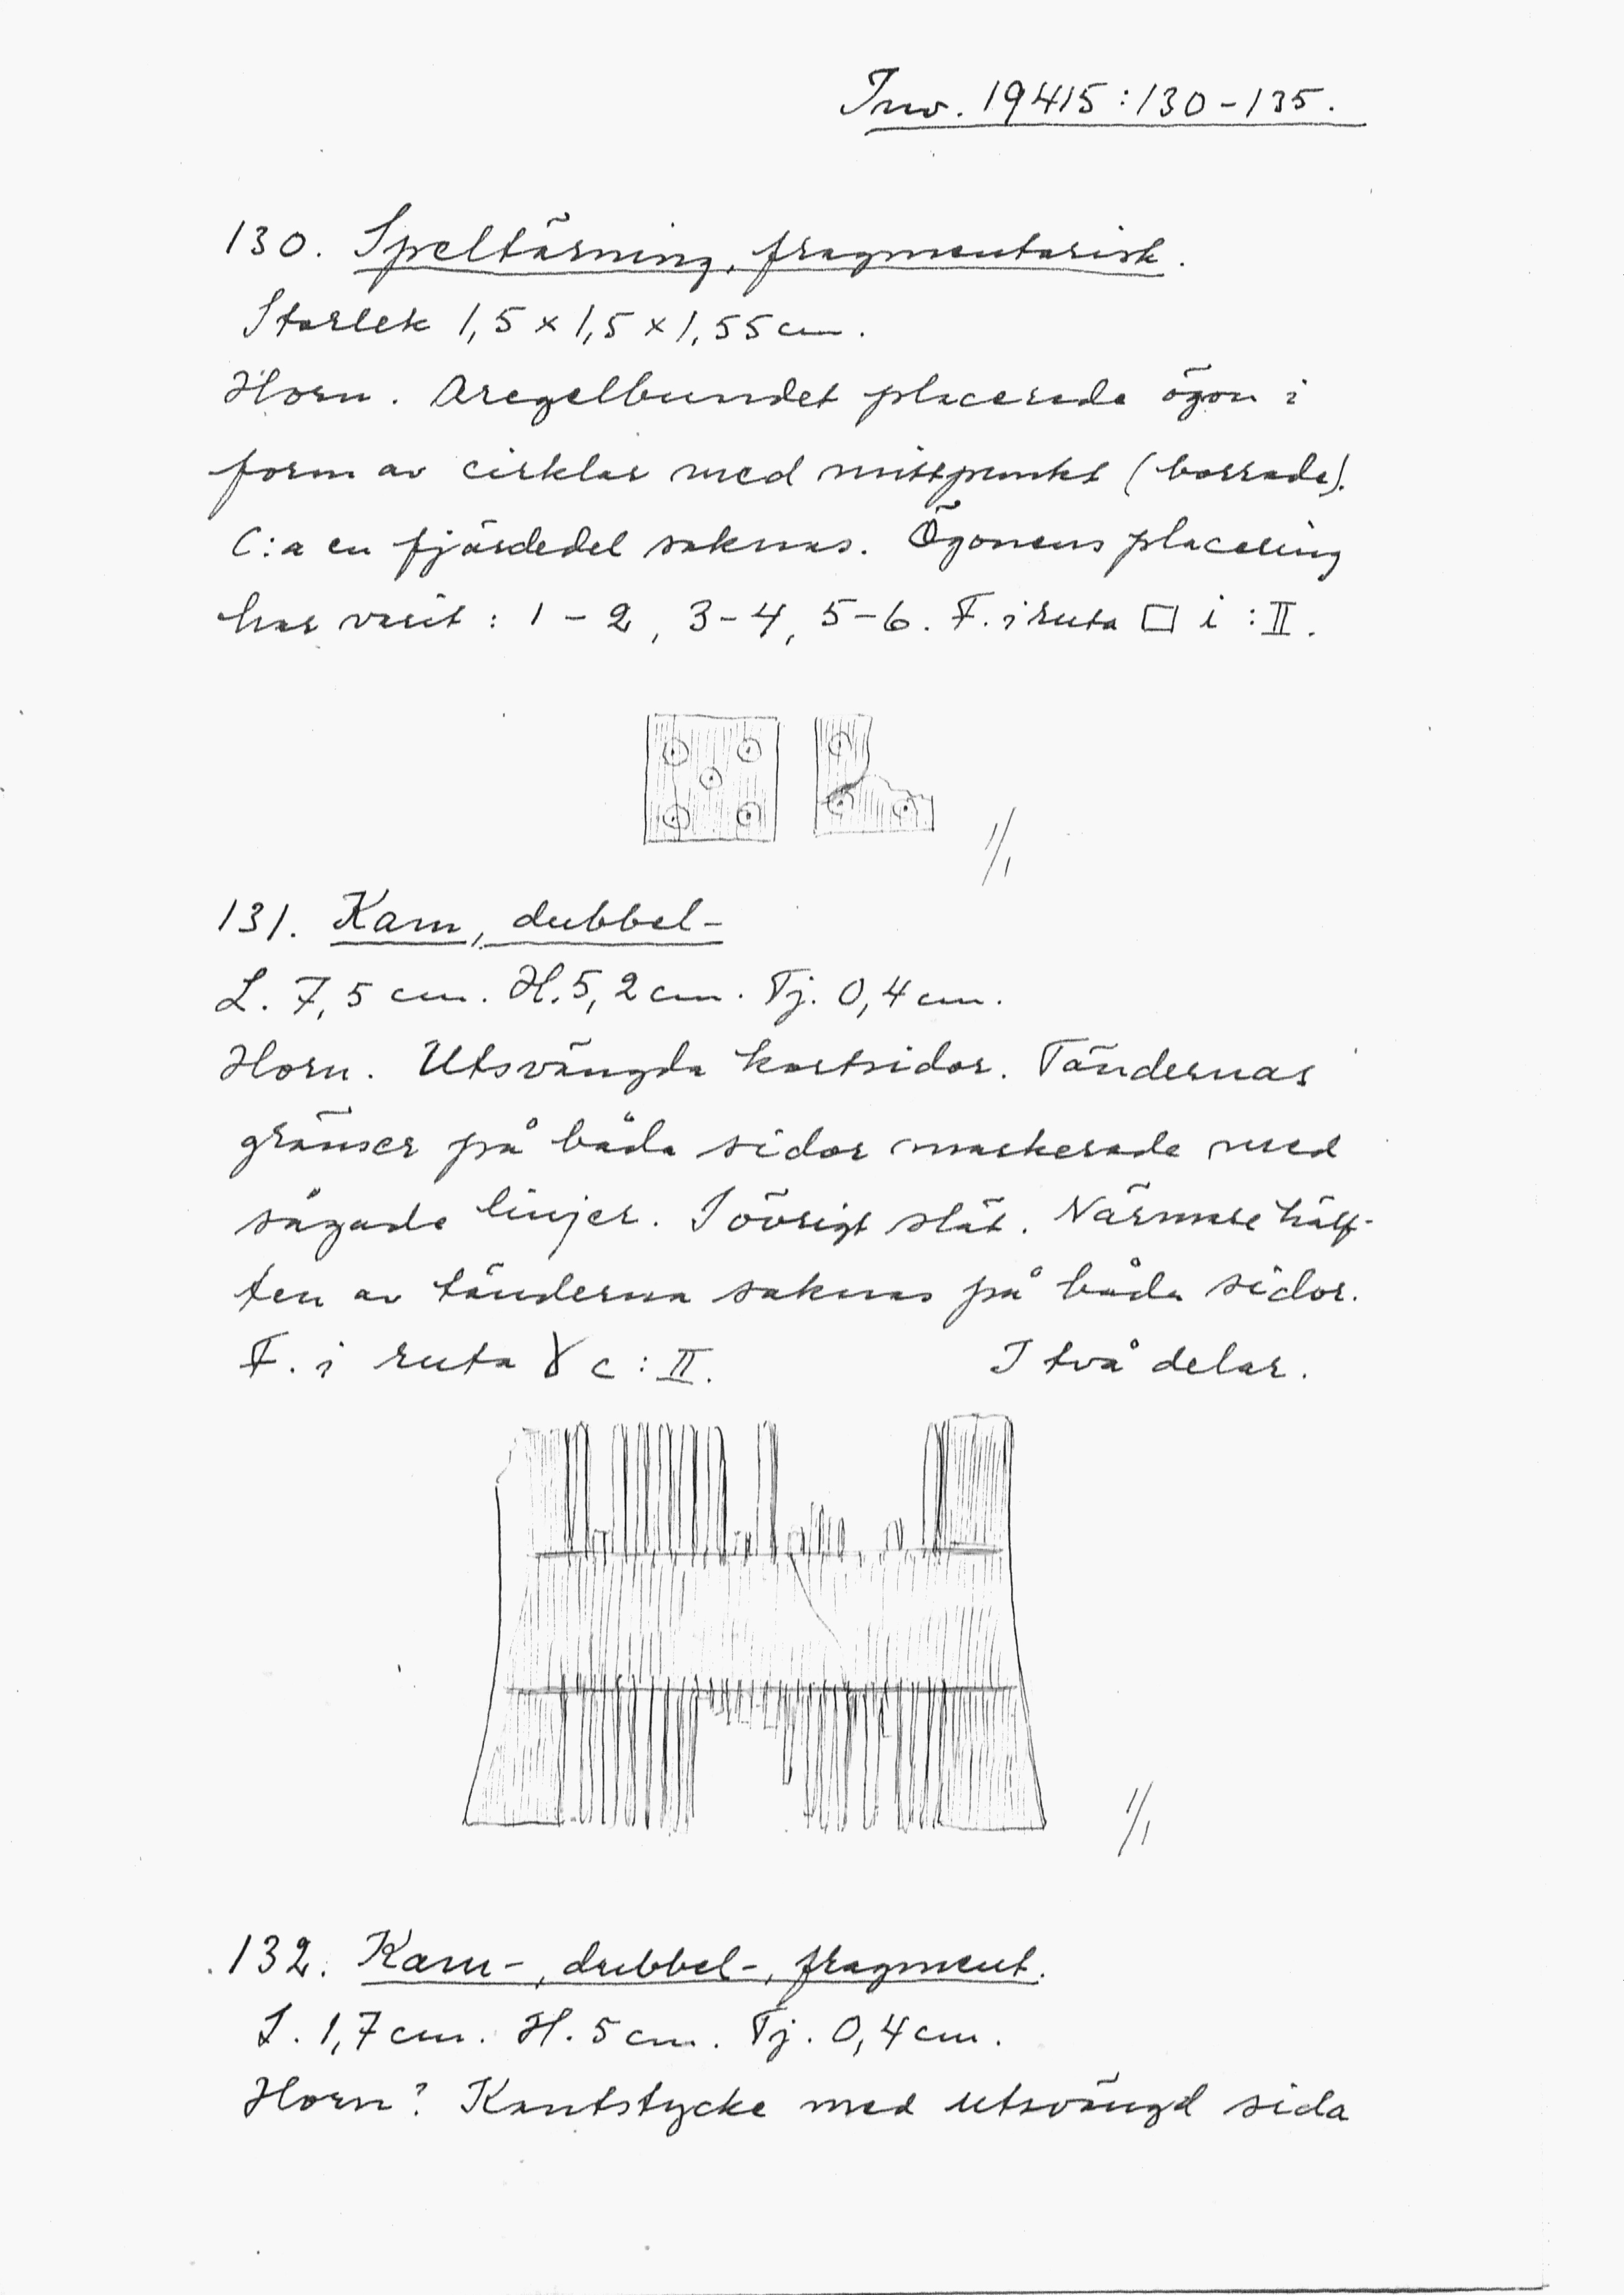 Inv. 19415:130-135.
130. Speltärning, fragmentarisk.
Storlek 1,5 x 1,5 x 1,55 cm.
Horn. Oregelbundet placerade ögon i
form av cirklar med mittpunkt (borrade).
C:a en fjärdedel saknas. Ögonens placering
har varit: 1-2, 3-4, 5-6. F. i ruta □ i :II.
1/1
131. Kam, dubbel-
L. 7,5 cm. H. 5,2 cm. Tj. 0,4 cm.
Horn. Utsvängda kortsidor. Tändernas
gränser på båda sidor markerade med
sågade linjer. I övrigt slät. Närmare hälf-
ten av tänderna saknas på båda sidor.
F. i ruta γ c : II. I två delar.
1/1
132. Kam-, dubbel-, fragment.
L. 1,7 cm. H. 5 cm. Tj. 0,4 cm.
Horn? Kantstycke med utsvängd sida